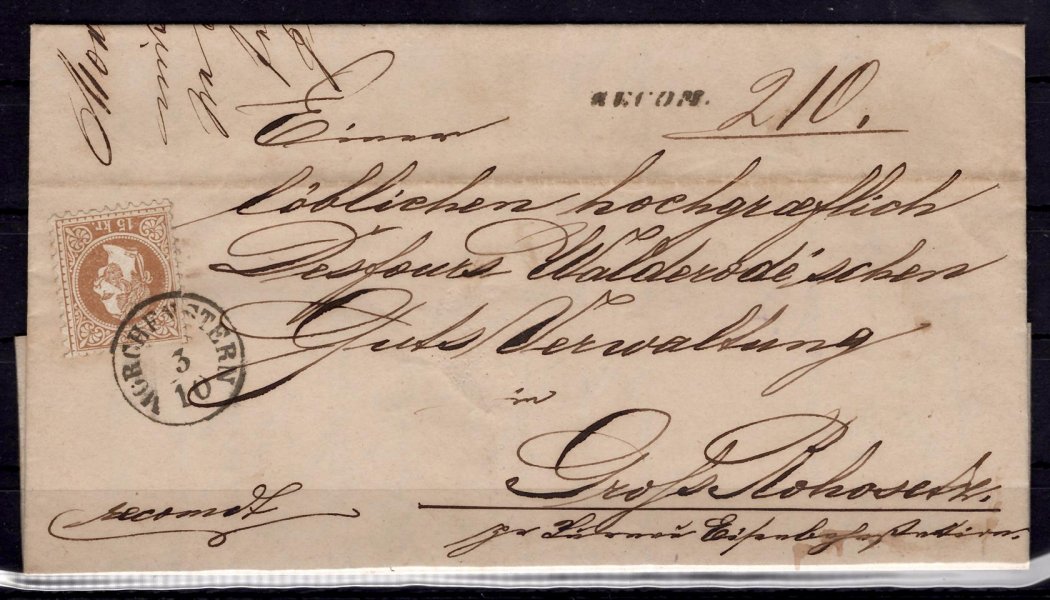 RECOM.
210.
Einer
löblichen hochgræflich
Desfours Walderode'schen
Guts Verwaltung
in
Groß Rohosetz.
pr Turnau Eisenbahnstation.
recomdt
15 kr
MORCHENSTERN
3
10